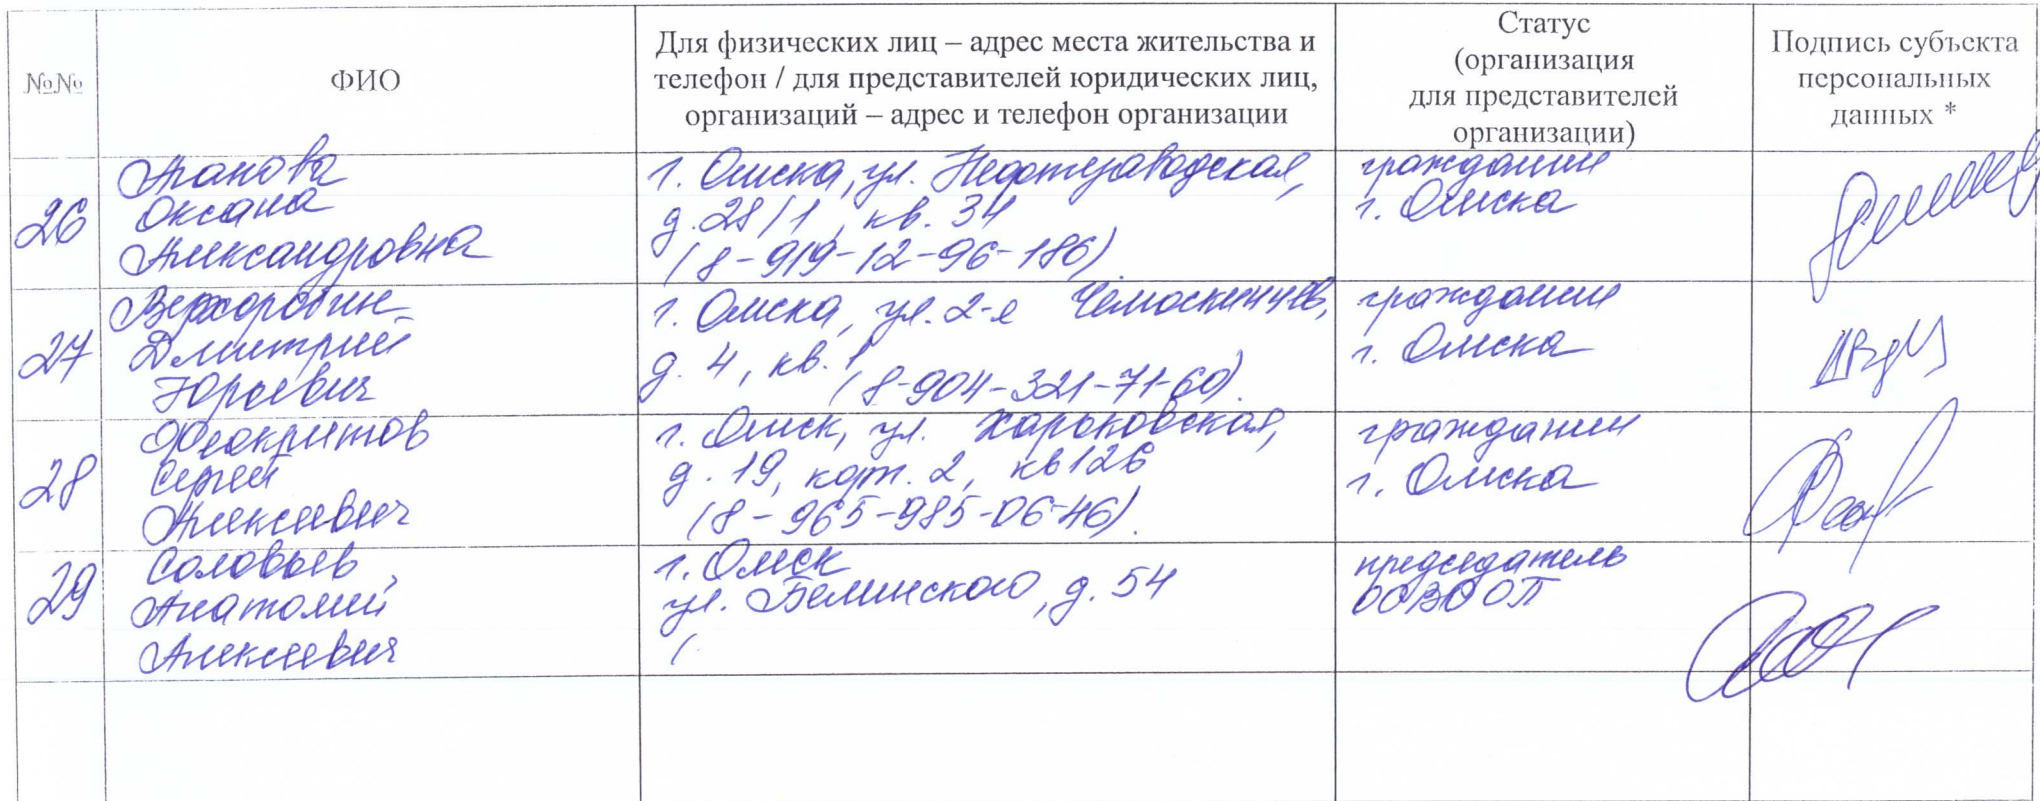 №№
ФИО
Для физических лиц – адрес места жительства и
телефон / для представителей юридических лиц,
организаций – адрес и телефон организации
Статус
(организация
для представителей
организации)
Подпись субъекта
персональных
данных *
26
Оксана
Александровна
г. Омска, ул. Нефтезаводская,
д. 28/1, кв. 34
(8-919-12-96-186)
гражданин
г. Омска
27
Дмитрий
Юрьевич
г. Омска, ул. 2-я
д. 4, кв. 1
(8-904-321-71-60).
гражданин
г. Омска
28
Феокритов
Сергей
Алексеевич
г. Омск, ул. Харьковская,
д. 19, корп. 2, кв 126
(8-965-985-06-46).
гражданин
г. Омска
29
Соловьев
Анатолий
Алексеевич
г. Омск
ул. Белинского, д. 54
(
председатель